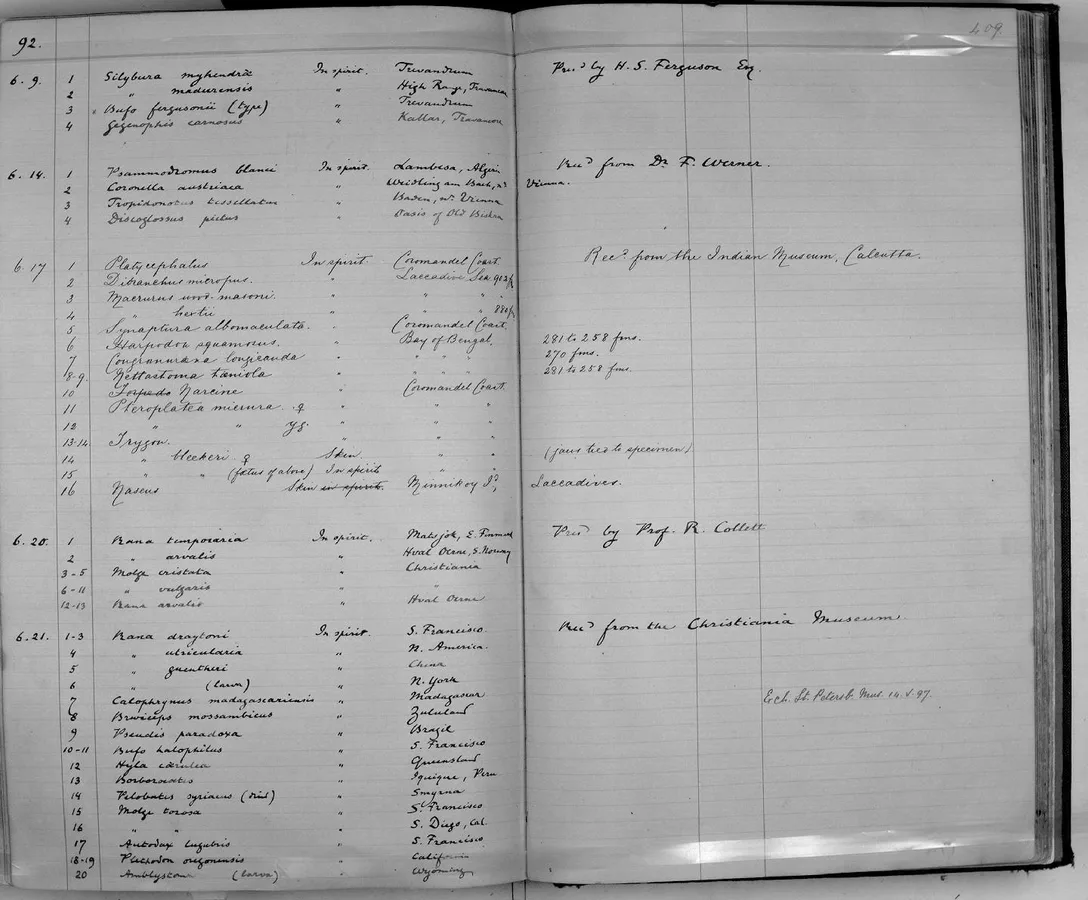 92.
409
6. 9. 1 Silybura myhendræ In spirit. Trevandrum Pres.d by H. S. Ferguson Esq.
2 " madurensis " High Range, Travancore
3 Bufo fergusonii (type) " Trevandrum
4 Gegenophis carnosus " Kallar, Travancore
6. 14. 1 Psammodromus blanci In spirit. Lambesa, Algiers Rec.d from Dr. F. Werner.
2 Coronella austriaca " Weidling am Bach, nr Vienna.
3 Tropidonotus tessellatus " Baden, nr. Vienna
4 Discoglossus pictus " Oasis of Old Biskra
6. 17 1 Platycephalus In spirit. Coromandel Coast. Rec.d from the Indian Museum, Calcutta.
2 Dibranchus micropus. " Laccadive Sea 902 f
3 Macrurus wood-masoni. " " "
4 " hextii " " 880 f
5 Synaptura albomaculata. " Coromandel Coast.
6 Harpodon squamosus. " Bay of Bengal, 281 to 258 fms.
7 Congromuræna longicauda " " " 270 fms.
8-9. Nettastoma tæniola " " " 281 to 258 fms.
10 Torpedo Narcine " Coromandel Coast
11 Pteroplatea micrura. ♀ " " "
12 " " yg. " " "
13-14 Trygon. " " "
14 " bleekeri ♀ Skin " " (jaws tied to specimen)
15 " " (fœtus of above) In spirit " "
16 Naseus Skin in spirits. Minnikoy Id, Laccadives.
6. 20. 1 Rana temporaria In spirit. Matsjok, E. Finmark Pres.d by Prof. R. Collett
2 " arvalis " Hval Oerne, S. Norway
3-5 Molge cristata " Christiania
6-11 " vulgaris " "
12-13 Rana arvalis " Hval Oerne
6. 21. 1-3 Rana draytoni In spirit. S. Francisco. Rec.d from the Christiania Museum.
4 " utricularia " N. America.
5 " guentheri " China
6 " (larva) " N. York
7 Calophrynus madagascariensis " Madagascar Exch. St. Petersb. Mus. 14. 5. 97.
8 Breviceps mossambicus " Zululand
9 Pseudis paradoxa " Brazil
10-11 Bufo halophilus " S. Francisco
12 Hyla cærulea " Queensland
13 Borborocœtes " Iquique, Peru
14 Pelobates syriacus " Smyrna
15 Molge torosa " S. Francisco
16 " " " S. Diego, Cal.
17 Autodax lugubris " S. Francisco.
18-19 Plethodon oregonensis " California
20 Amblystoma (larva) " Wyoming